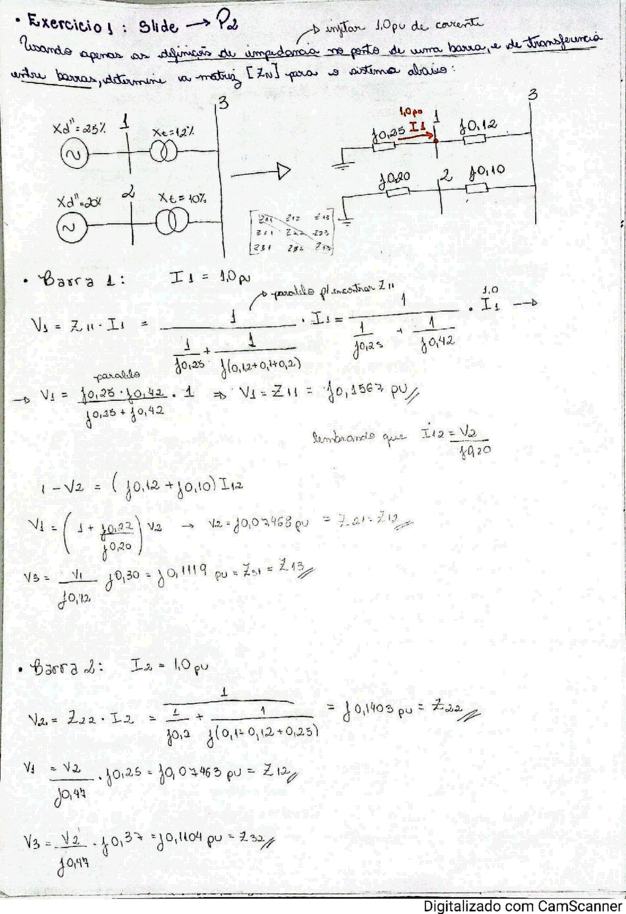 • Exercício 1: Slide → P2
→ injetar 1,0 pu de corrente
Usando apenas as definições de impedância no ponto de uma barra, e de transferência
entre barras, determine a matriz [ZN] para o sistema abaixo:
3
3
Xd" = 25%
1
Xt = 12%
1,0 pu
j0,25
I1
1
j0,12
2
Xd" = 20%
Xt = 10%
j0,20
2
j0,10
Z11 Z12 Z13
• Barra 1: I1 = 1,0 pu
→ paralelo p/ encontrar Z11
V1 = Z11 · I1 = 1 / (1/j0,25 + 1/j(0,12+0,1+0,2)) · I1 = 1 / (1/j0,25 + 1/j0,42) · I1 →
1,0
paralelo
→ V1 = j0,25 · j0,42 / (j0,25 + j0,42) · 1 ⇒ V1 = Z11 = j0,1567 pu //
lembrando que I12 = V2 / j0,20
1 - V2 = (j0,12 + j0,10) I12
V1 = (1 + j0,22 / j0,20) V2 → V2 = j0,07463 pu = Z21 = Z12 //
V3 = V1 / j0,42 j0,30 = j0,1119 pu = Z31 = Z13 //
• Barra 2: I2 = 1,0 pu
V2 = Z22 · I2 = 1 / (1/j0,2 + 1/j(0,1+0,12+0,25)) = j0,1403 pu = Z22 //
V1 = V2 / j0,47 · j0,25 = j0,07463 pu = Z12 //
V3 = V2 / j0,47 · j0,37 = j0,1104 pu = Z32 //
Digitalizado com CamScanner